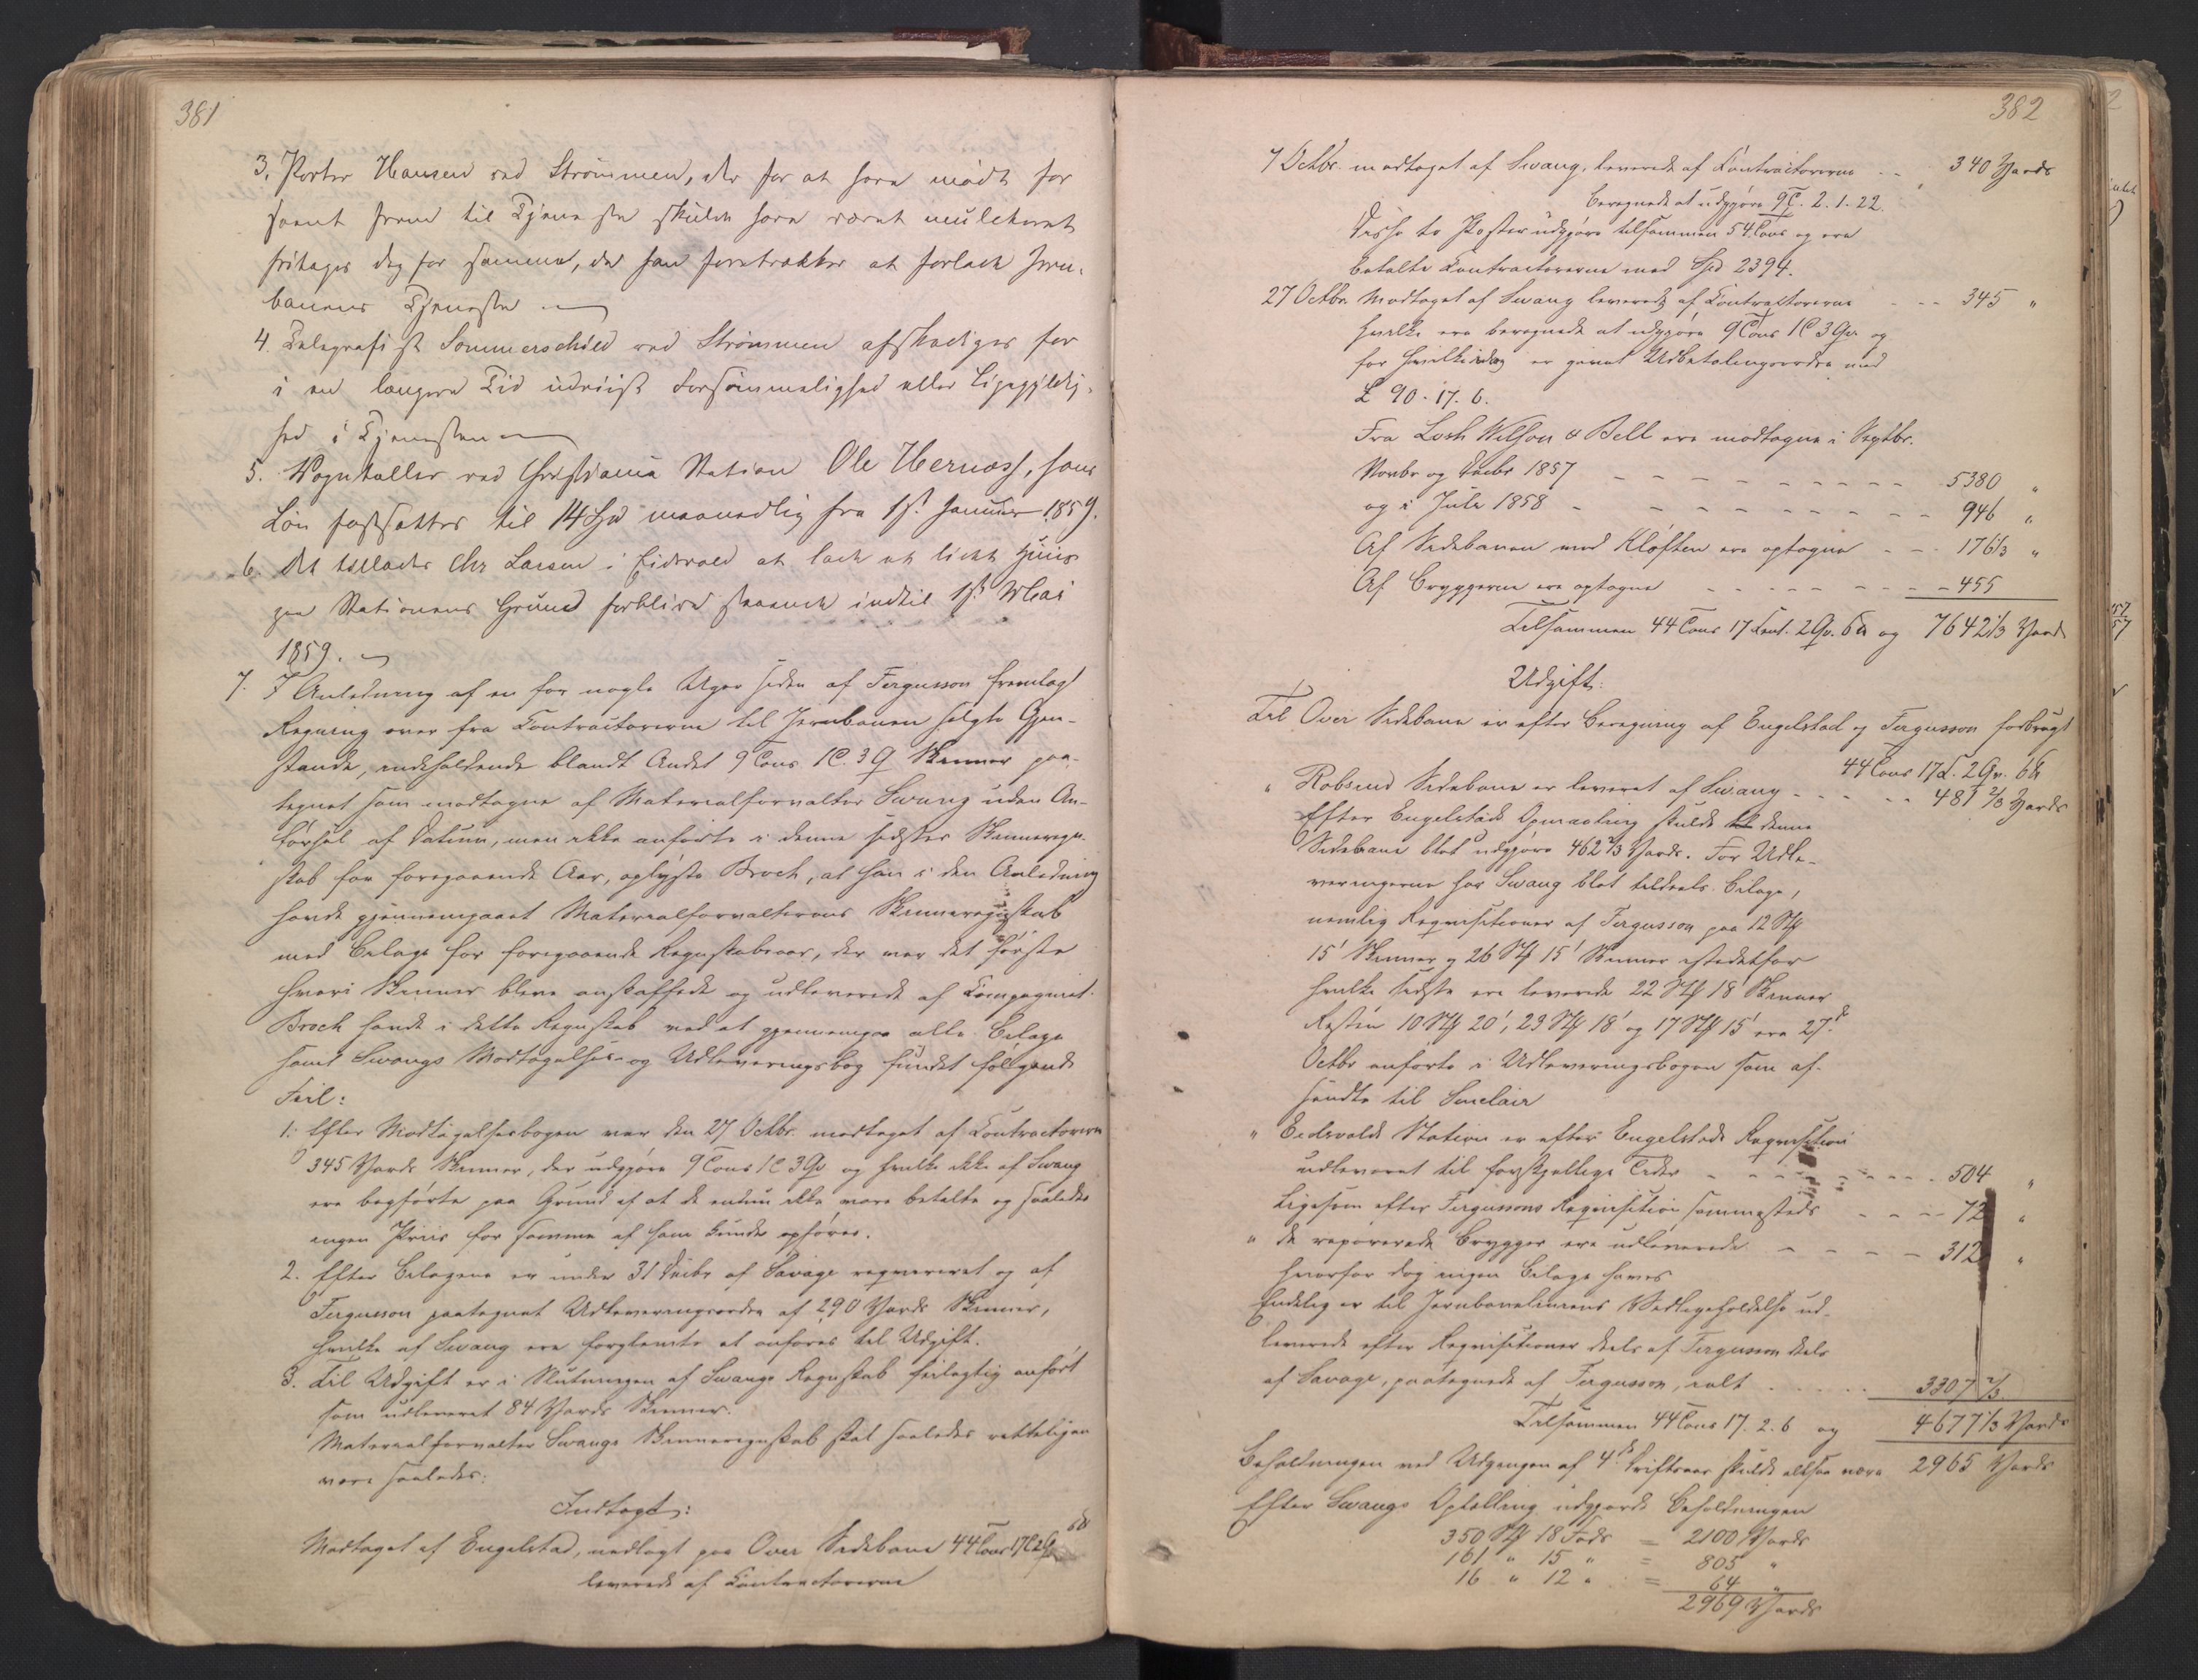 381
3. Porter Hansen ved Strømmen, der for at have mødt for
seent frem til Tjeneste skulde have været mulcteret
fritages dog for samme, da han foretrækker at forlade Jern-
banens Tjeneste
4. Telegrafist Sommerschild ved Strømmen afskediges for
i en længere Tid udviist Forsømmelighed eller Ligegyldig-
hed i Tjenesten
5. Vogntæller ved Christiania Station Ole Hernæss, hans
Løn fastsættes til 14 Spd maanedlig fra 1st Januar 1859.
6. Det tillades Chr Larsen i Eidsvold at lade et lidet Huus
paa Stationens Grund forblive staaende indtil 1st Mai
1859.
7. I Anledning af en for nogle Uger siden af Fergusson fremlagt
Regning over fra Contractorerne til Jernbanen solgte Gjen-
stande, indeholdende blandt Andet 9 Tons 1C. 3Q Skinner paa-
tegnet som modtagne af Materialforvalter Swang uden An-
førsel af Datum, men ikke anførte i denne sidstes Skinneregn-
skab for foregaaende Aar, oplyste Broch, at han i den Anledning
havde gjennemgaaet Materialforvalterens Skinneregnskab
med Bilage for foregaaende Regnskabsaar, der var det første
hvori Skinner bleve anskaffede og udleverede af Compagniet.
Broch havde i dette Regnskab ved at gjennemgaa alle Bilage
samt Swangs Modtagelses- og Udleveringsbog fundet følgende
Feil:
1. Efter Modtagelsesbogen var den 27 Octbr. modtaget af Contractorerne
345 Yards Skinner, der udgjøre 9 Tons 1C 3Qr og hvilke ikke af Swang
ere bogførte paa Grund af at de endnu ikke vare betalte og saaledes
ingen Priis for samme af ham kunde opføres.
2. Efter Bilagene er under 31 Decbr af Savage reqvireret og af
Fergusson paategnet Udleveringsordre af 290 Yards Skinner,
hvilke af Swang ere forglemte at anføres til Udgift.
3. Til Udgift er i Slutningen af Swangs Regnskab feilagtig anført
som udleveret 84 Yards Skinner.
Materialforvalter Swangs Skinneregnskab skal saaledes rettelig
være saaledes:
Indtægt:
Modtaget af Engelstad, nedlagt paa Oven Sidebane 44 Tons 17C 2Qr 6 ℔
leverede af Contractorerne
382
7 Octbr. modtaget af Swang, leverede af Contractorerne - - 340 Yards
beregnede at udgjøre 9T. 2. 1. 22.
Disse to Poster udgjøre tilsammen 54 Tons og ere
betalte Contractorerne med Spd 2394.
27 Octbr. Modtaget af Swang leverede af Contractorerne - - - 345 "
hvilke ere beregnede at udgjøre 9 Tons 1C 3Qr og
for hvilke idag er givet Udbetalingsordre med
£ 90. 17. 6.
Fra Losh Wilson & Bell ere modtagne i Septbr.
Novbr og Decbr 1857 - - - - - - - - - 5380 "
og i Juli 1858 - - - - - - - - - 946 "
Af Sidebanen ved Kløften ere optagne - - - 176 1/3 "
Af Bryggerne ere optagne - - - - - - - - 455
Tilsammen 44 Tons 17 Cent. 2Qr. 6 ℔ og 7642 1/3 Yards
Udgift:
Til Oven Sidebane er efter Beregning af Engelstad og Fergusson forbrugt
44 Tons 17C. 2Qr. 6 ℔
" Robsrud Sidebane er leveret af Swang - - - - - 481 2/3 Yards
Efter Engelstads Opmaaling skulde denne
Sidebane blot udgjøre 462 2/3 Yards. For Udle-
veringerne har Swang blot tildeels Bilage,
nemlig Reqvisitioner af Fergusson paa 12 Stk
15' Skinner og 26 Stk 15' Skinner istedetfor
hvilke sidste ere leverede 22 Stk 18' Skinner
Resten 10 Stk 20', 29 Stk 18' og 17 Stk 15' ere 27de
Octbr anførte i Udleveringsbogen som af-
sendte til Sinclair
" Eidsvolds Station er efter Engelstads Reqvisition
udleveret til forskjellige Tider - - - - - - - - 504 "
Ligesom efter Fergussons Reqvisition sammesteds - - - - 72 "
" de reparerede Brygger ere udleverede - - - - - 312 "
hvorfor dog ingen Bilage haves
Endelig er til Jernbaneliniens Vedligeholdelse ud-
leverede efter Reqvisitioner deels af Fergusson deels
af Savage, paategnede af Fergusson, ialt - - - - - 3307 2/3
Tilsammen 44 Tons 17. 2. 6 og 4677 1/3 Yards
Beholdningen ved Udgangen af 4de Driftsaar skulde altsaa være 2965 Yards
Efter Swangs Optælling udgjorde Beholdningen
350 Stk 18 Fods = 2100 Yards
161 " 15 " = 805 "
16 " 12 " = 64 "
2969 Yards